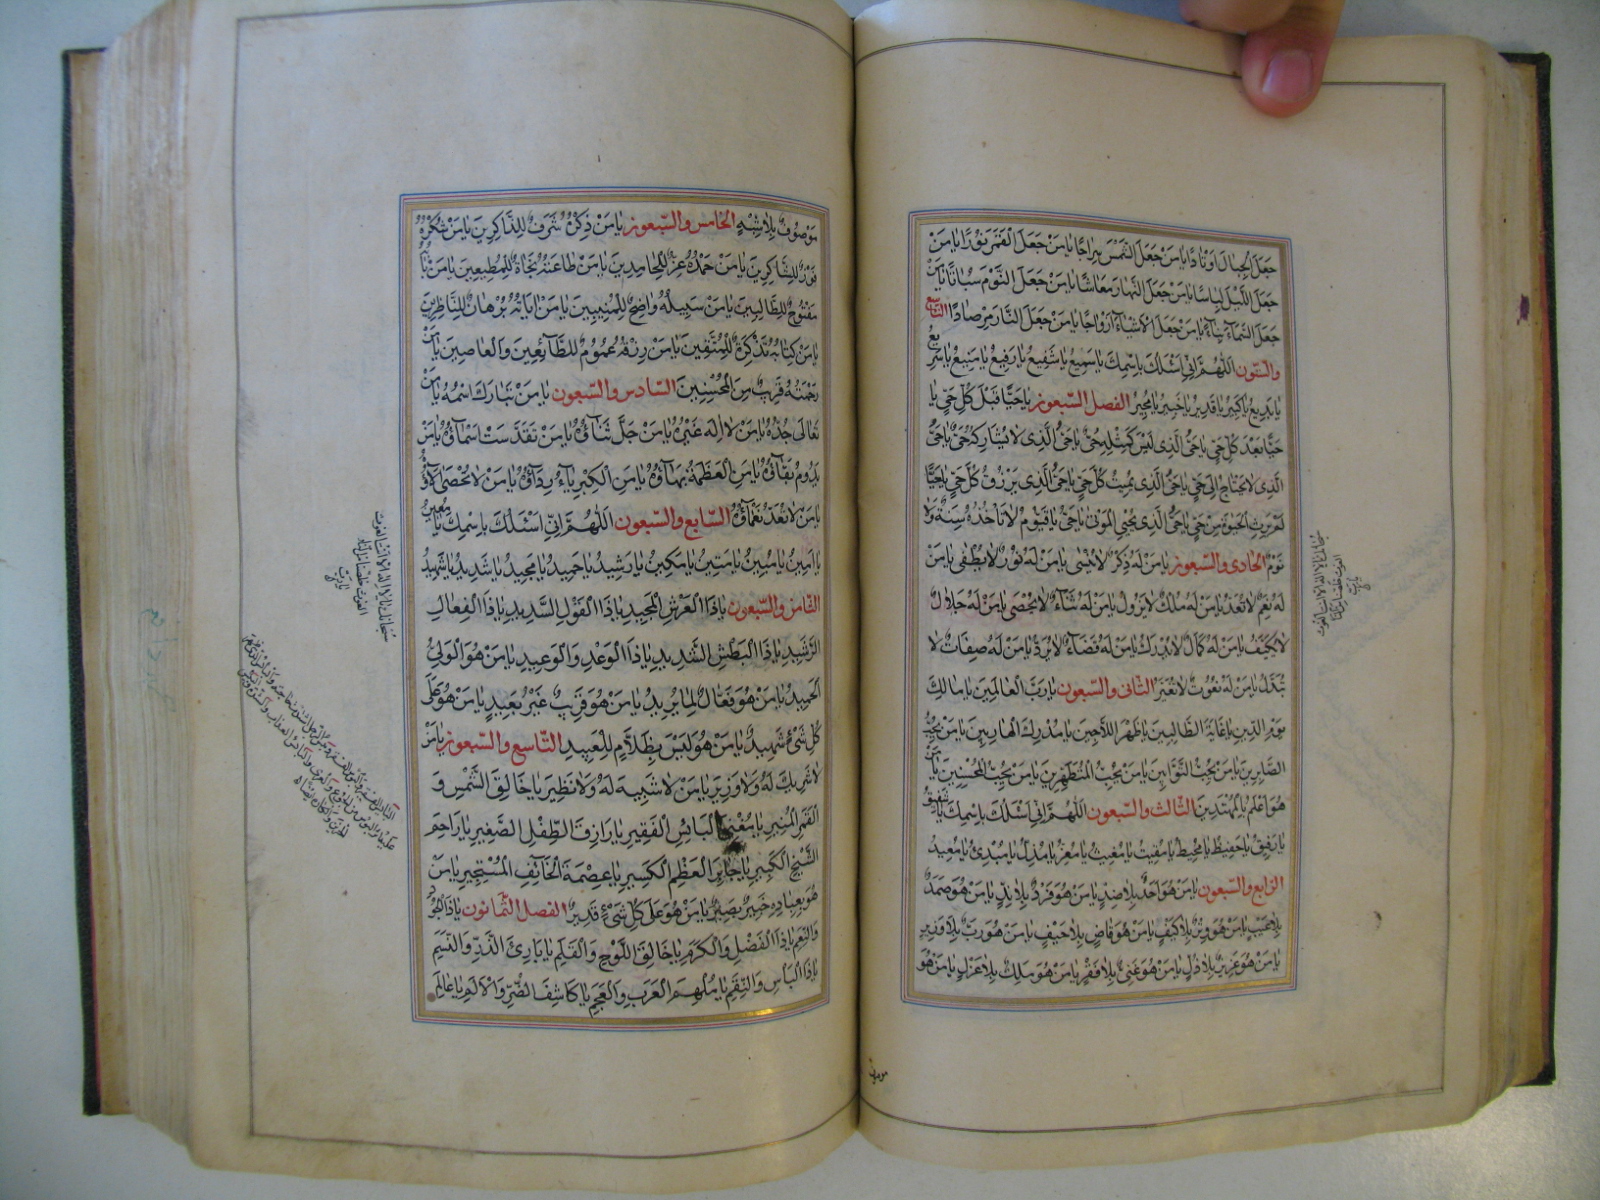 جَعَلَ الْجِبَالَ اَوْتَادًا يَا مَنْ جَعَلَ الشَّمْسَ سِرَاجًا يَا مَنْ جَعَلَ الْقَمَرَ نُورًا يَا مَنْ
جَعَلَ اللَّيْلَ لِبَاسًا يَا مَنْ جَعَلَ النَّهَارَ مَعَاشًا يَا مَنْ جَعَلَ النَّوْمَ سُبَاتًا يَا مَنْ
جَعَلَ السَّمَآءَ بِنَآءً يَا مَنْ جَعَلَ الْاَشْيَآءَ اَزْوَاجًا يَا مَنْ جَعَلَ النَّارَ مِرْصَادًا التَّاسِعُ
وَالسِّتُّونَ اَللّٰهُمَّ اِنِّي اَسْئَلُكَ بِاسْمِكَ يَا سَمِيعُ يَا شَفِيعُ يَا رَفِيعُ يَا مَنِيعُ يَا سَرِيعُ
يَا بَدِيعُ يَا كَبِيرُ يَا قَدِيرُ يَا خَبِيرُ يَا مُجِيرُ الفصل السّبعون يَا حَيًّا قَبْلَ كُلِّ حَيٍّ يَا
حَيًّا بَعْدَ كُلِّ حَيٍّ يَا حَيُّ الَّذِي لَيْسَ كَمِثْلِهِ حَيٌّ يَا حَيُّ الَّذِي لَا يُشَارِكُهُ حَيٌّ يَا حَيُّ
الَّذِي لَا يَحْتَاجُ اِلَى حَيٍّ يَا حَيُّ الَّذِي يُمِيتُ كُلَّ حَيٍّ يَا حَيُّ الَّذِي يَرْزُقُ كُلَّ حَيٍّ يَا حَيًّا
لَمْ يَرِثِ الْحَيٰوةَ مِنْ حَيٍّ يَا حَيُّ الَّذِي يُحْيِي الْمَوْتٰى يَا حَيُّ يَا قَيُّومُ لَا تَأْخُذُهُ سِنَةٌ وَلَا
نَوْمٌ الحادي والسّبعون يَا مَنْ لَهُ ذِكْرٌ لَا يُنْسٰى يَا مَنْ لَهُ نُورٌ لَا يُطْفٰى يَا مَنْ
لَهُ نِعَمٌ لَا تُعَدُّ يَا مَنْ لَهُ مُلْكٌ لَا يَزُولُ يَا مَنْ لَهُ ثَنَآءٌ لَا يُحْصٰى يَا مَنْ لَهُ جَلَالٌ
لَا يُكَيَّفُ يَا مَنْ لَهُ كَمَالٌ لَا يُدْرَكُ يَا مَنْ لَهُ قَضَآءٌ لَا يُرَدُّ يَا مَنْ لَهُ صِفَاتٌ لَا
تُبَدَّلُ يَا مَنْ لَهُ نُعُوتٌ لَا تُغَيَّرُ الثّاني والسّبعون يَا رَبَّ الْعَالَمِينَ يَا مَالِكَ
يَوْمِ الدِّينِ يَا غَايَةَ الطَّالِبِينَ يَا ظَهْرَ اللَّاجِينَ يَا مُدْرِكَ الْهَارِبِينَ يَا مَنْ يُحِبُّ
الصَّابِرِينَ يَا مَنْ يُحِبُّ التَّوَّابِينَ يَا مَنْ يُحِبُّ الْمُتَطَهِّرِينَ يَا مَنْ يُحِبُّ الْمُحْسِنِينَ يَا مَنْ
هُوَ اَعْلَمُ بِالْمُهْتَدِينَ الثّالث والسّبعون اَللّٰهُمَّ اِنِّي اَسْئَلُكَ بِاسْمِكَ يَا شَفِيقُ
يَا رَفِيقُ يَا حَفِيظُ يَا مُحِيطُ يَا مُقِيتُ يَا مُغِيثُ يَا مُعِزُّ يَا مُذِلُّ يَا مُبْدِئُ يَا مُعِيدُ
الرّابع والسّبعون يَا مَنْ هُوَ اَحَدٌ بِلَا ضِدٍّ يَا مَنْ هُوَ فَرْدٌ بِلَا نِدٍّ يَا مَنْ هُوَ صَمَدٌ
بِلَا عَيْبٍ يَا مَنْ هُوَ وِتْرٌ بِلَا كَيْفٍ يَا مَنْ هُوَ قَاضٍ بِلَا حَيْفٍ يَا مَنْ هُوَ رَبٌّ بِلَا وَزِيرٍ
يَا مَنْ هُوَ عَزِيزٌ بِلَا ذُلٍّ يَا مَنْ هُوَ غَنِيٌّ بِلَا فَقْرٍ يَا مَنْ هُوَ مَلِكٌ بِلَا عَزْلٍ يَا مَنْ هُوَ
موصوف
مَوْصُوفٌ بِلَا شَبِيهٍ الخامس والسّبعون يَا مَنْ ذِكْرُهُ شَرَفٌ لِلذَّاكِرِينَ يَا مَنْ شُكْرُهُ
فَوْزٌ لِلشَّاكِرِينَ يَا مَنْ حَمْدُهُ عِزٌّ لِلْحَامِدِينَ يَا مَنْ طَاعَتُهُ نَجَاةٌ لِلْمُطِيعِينَ يَا مَنْ بَابُهُ
مَفْتُوحٌ لِلطَّالِبِينَ يَا مَنْ سَبِيلُهُ وَاضِحٌ لِلْمُنِيبِينَ يَا مَنْ اٰيَاتُهُ بُرْهَانٌ لِلنَّاظِرِينَ
يَا مَنْ كِتَابُهُ تَذْكِرَةٌ لِلْمُتَّقِينَ يَا مَنْ رِزْقُهُ عُمُومٌ لِلطَّآئِعِينَ وَالْعَاصِينَ يَا مَنْ
رَحْمَتُهُ قَرِيبٌ مِنَ الْمُحْسِنِينَ السّادس والسّبعون يَا مَنْ تَبَارَكَ اسْمُهُ يَا مَنْ
تَعَالٰى جَدُّهُ يَا مَنْ لَا اِلٰهَ غَيْرُهُ يَا مَنْ جَلَّ ثَنَآؤُهُ يَا مَنْ تَقَدَّسَتْ اَسْمَآؤُهُ يَا مَنْ
يَدُومُ بَقَآؤُهُ يَا مَنِ الْعَظَمَةُ بَهَآؤُهُ يَا مَنِ الْكِبْرِيَآءُ رِدَآؤُهُ يَا مَنْ لَا تُحْصٰى اٰلَآؤُهُ
يَا مَنْ لَا تُعَدُّ نَعْمَآؤُهُ السّابع والسّبعون اَللّٰهُمَّ اِنِّي اَسْئَلُكَ بِاسْمِكَ يَا مُعِينُ
يَا اَمِينُ يَا مُبِينُ يَا مَتِينُ يَا مَكِينُ يَا رَشِيدُ يَا حَمِيدُ يَا مَجِيدُ يَا شَدِيدُ يَا شَهِيدُ
الثّامن والسّبعون يَا ذَا الْعَرْشِ الْمَجِيدِ يَا ذَا الْقَوْلِ السَّدِيدِ يَا ذَا الْفِعَالِ
الرَّشِيدِ يَا ذَا الْبَطْشِ الشَّدِيدِ يَا ذَا الْوَعْدِ وَالْوَعِيدِ يَا مَنْ هُوَ الْوَلِيُّ
الْحَمِيدُ يَا مَنْ هُوَ فَعَّالٌ لِمَا يُرِيدُ يَا مَنْ هُوَ قَرِيبٌ غَيْرُ بَعِيدٍ يَا مَنْ هُوَ عَلٰى
كُلِّ شَيْءٍ شَهِيدٌ يَا مَنْ هُوَ لَيْسَ بِظَلَّامٍ لِلْعَبِيدِ التّاسع والسّبعون يَا مَنْ
لَا شَرِيكَ لَهُ وَلَا وَزِيرَ يَا مَنْ لَا شَبِيهَ لَهُ وَلَا نَظِيرَ يَا خَالِقَ الشَّمْسِ وَ
الْقَمَرِ الْمُنِيرِ يَا مُغْنِيَ الْبَآئِسِ الْفَقِيرِ يَا رَازِقَ الطِّفْلِ الصَّغِيرِ يَا رَاحِمَ
الشَّيْخِ الْكَبِيرِ يَا جَابِرَ الْعَظْمِ الْكَسِيرِ يَا عِصْمَةَ الْخَآئِفِ الْمُسْتَجِيرِ يَا مَنْ
هُوَ بِعِبَادِهِ خَبِيرٌ بَصِيرٌ يَا مَنْ هُوَ عَلٰى كُلِّ شَيْءٍ قَدِيرٌ الفصل الثّمانون يَا ذَا الْجُودِ
وَالنِّعَمِ يَا ذَا الْفَضْلِ وَالْكَرَمِ يَا خَالِقَ اللَّوْحِ وَالْقَلَمِ يَا بَارِئَ الذَّرِّ وَالنَّسَمِ
يَا ذَا الْبَأْسِ وَالنِّقَمِ يَا مُلْهِمَ الْعَرَبِ وَالْعَجَمِ يَا كَاشِفَ الضُّرِّ وَالْاَلَمِ يَا عَالِمَ
سُبْحَانَكَ يَا لَا اِلٰهَ اِلَّا اَنْتَ الْغَوْثَ
الْغَوْثَ خَلِّصْنَا مِنَ النَّارِ
يَا رَبِّ